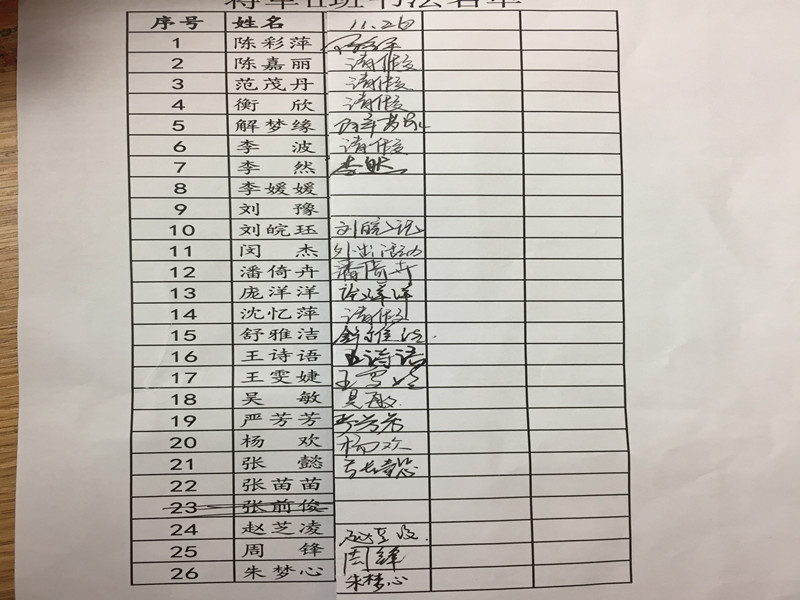 序号 姓名 11.26
1 陈彩萍
2 陈嘉丽 请假
3 范茂丹 请假
4 衡欣 请假
5 解梦缘 解梦缘
6 李波 请假
7 李然 李然
8 李媛媛
9 刘豫
10 刘皖珏 刘皖珏
11 闵杰 外出活动
12 潘倚卉 潘倚卉
13 庞洋洋 庞洋洋
14 沈忆萍 请假
15 舒雅洁 舒雅洁
16 王诗语 王诗语
17 王雯婕 王雯婕
18 吴敏 吴敏
19 严芳芳 严芳芳
20 杨欢 杨欢
21 张懿 张懿
22 张苗苗
23 张前俊
24 赵芝凌 赵芝凌
25 周锋 周锋
26 朱梦心 朱梦心